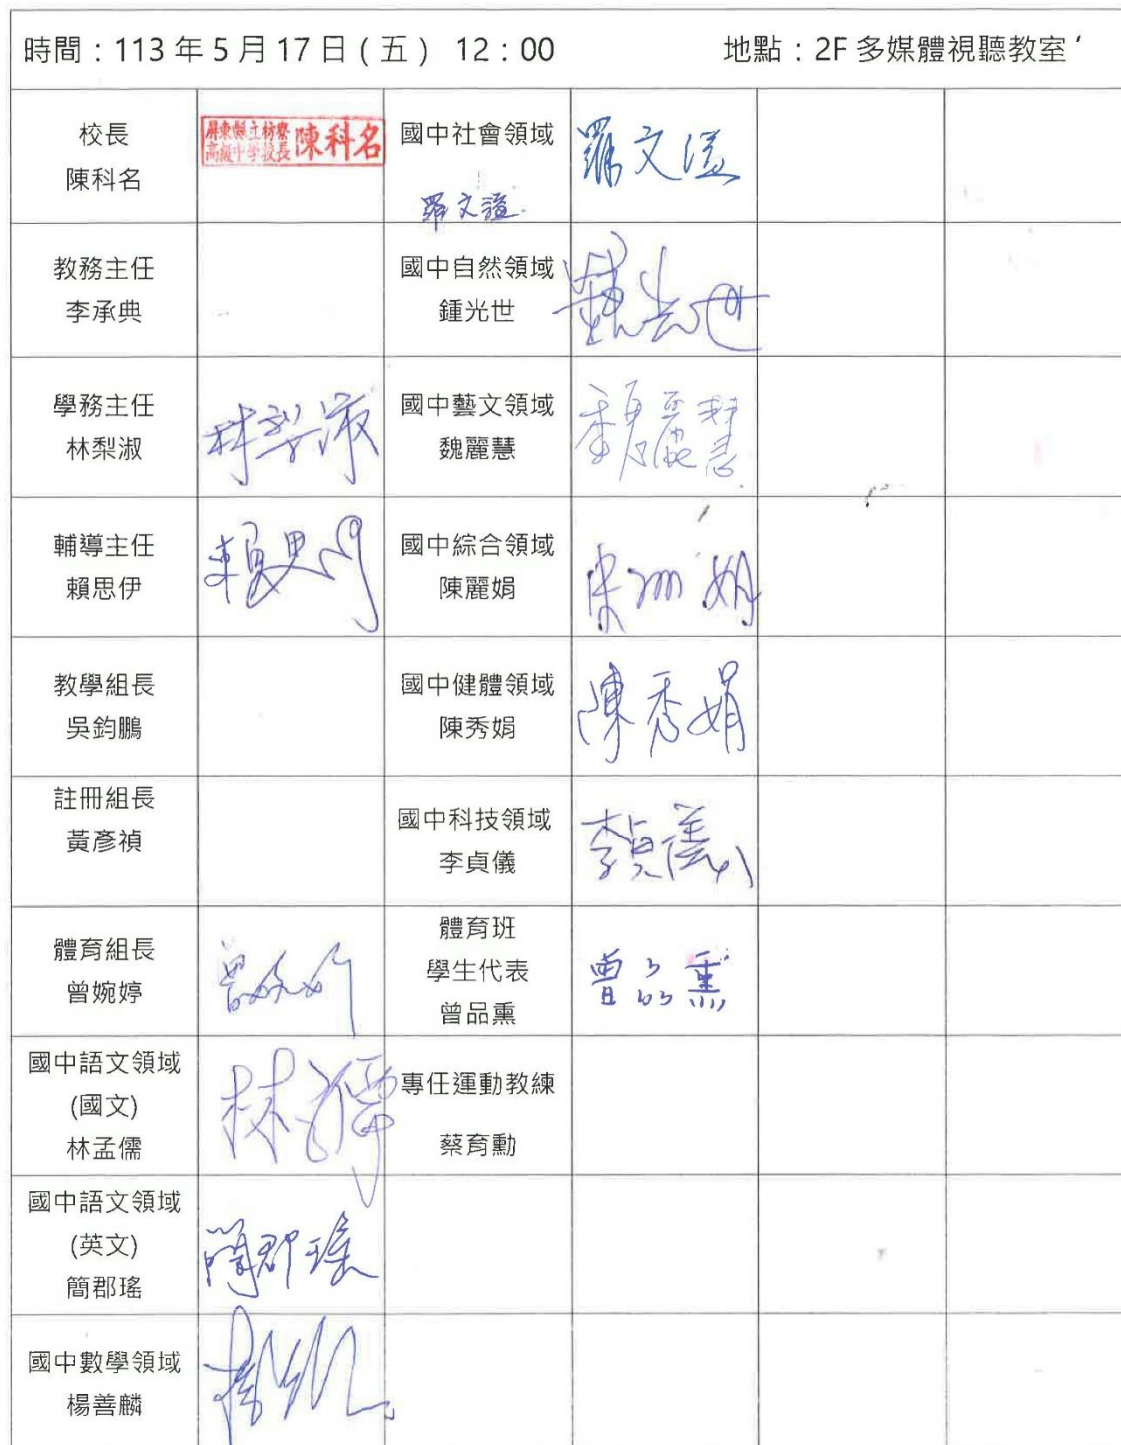 時間：113年5月17日(五) 12：00 地點：2F多媒體視聽教室
校長
陳科名
屏東縣立枋寮
高級中學校長
陳科名
國中社會領域
羅文謚
羅文謚
教務主任
李承典
國中自然領域
鍾光世
鍾光世
學務主任
林梨淑
林梨淑
國中藝文領域
魏麗慧
魏麗慧
輔導主任
賴思伊
賴思伊
國中綜合領域
陳麗娟
陳麗娟
教學組長
吳鈞鵬
國中健體領域
陳秀娟
陳秀娟
註冊組長
黃彥禎
國中科技領域
李貞儀
李貞儀
體育組長
曾婉婷
曾婉婷
體育班
學生代表
曾品熏
曾品熏
國中語文領域
(國文)
林孟儒
林孟儒
專任運動教練
蔡育勳
國中語文領域
(英文)
簡郡瑤
簡郡瑤
國中數學領域
楊善麟